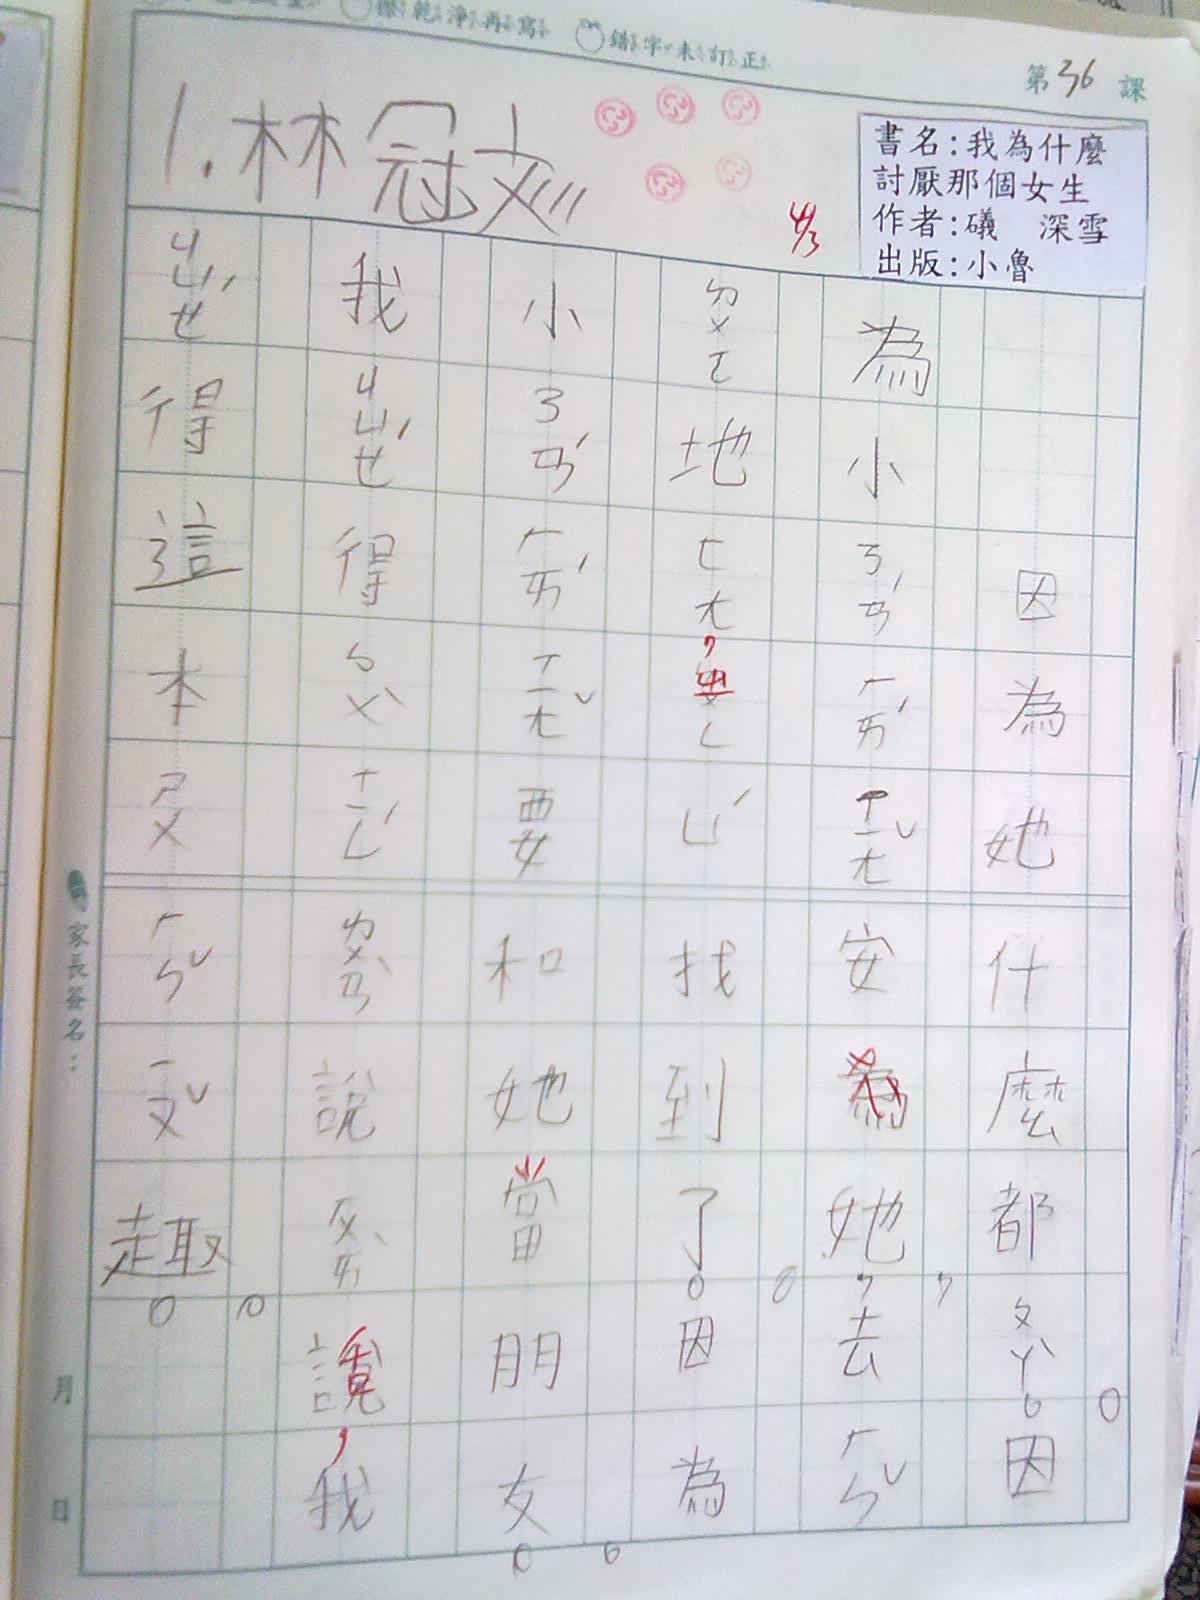 擦乾淨再寫 錯字未訂正
第36課
1.林冠彣
4/3
書名:我為什麼
討厭那個女生
作者:礒　深雪
出版:小魯
因為她什麼都ㄆㄚˋ。因
為小ㄋㄢˊㄏㄞˊㄒㄧㄤˇ安為她,去ㄏㄣˇ
ㄉㄨㄛ地ㄈㄤ,ㄓㄨㄥㄩˊ找到了。因為
小ㄋㄢˊㄏㄞˊㄒㄧㄤˇ要和她當朋友。
我ㄐㄩㄝˊ得ㄅㄨˋㄊㄧㄥˊㄉㄨㄢˋ說ㄏㄨㄞˋ說,我
ㄐㄩㄝˊ得這本ㄕㄨㄏㄣˇㄧㄡˇ趣。
家長簽名:
月
日